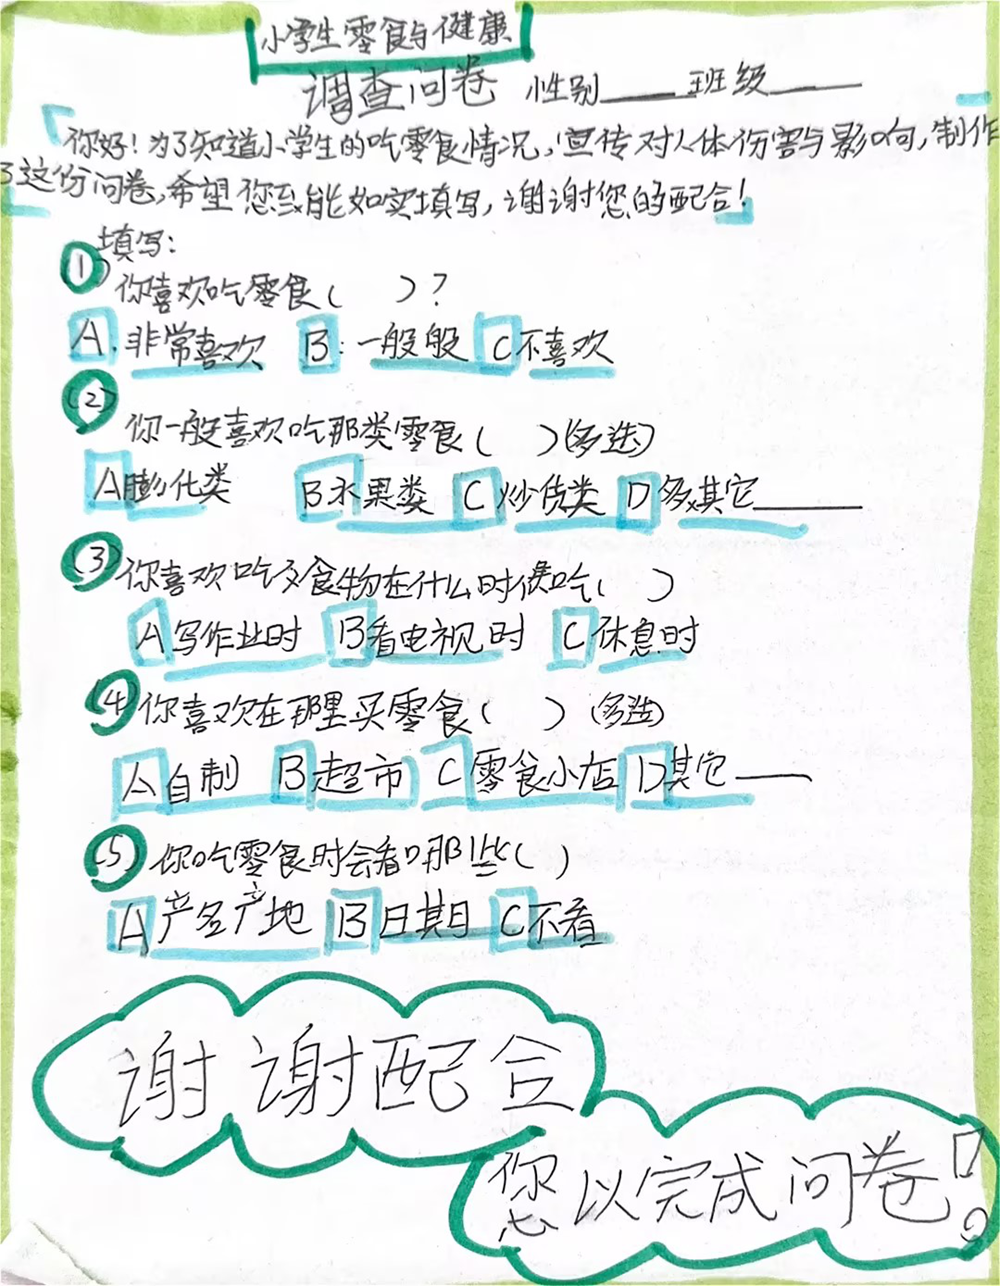 小学生零食与健康
调查问卷 性别____ 班级____
你好!为了知道小学生的吃零食情况,宣传对人体伤害与影响,制作
了这份问卷,希望您能如实填写,谢谢您的配合!
填写:
① 你喜欢吃零食( )?
A.非常喜欢 B:一般般 C不喜欢
② 你一般喜欢吃那类零食( )(多选)
A膨化类 B水果类 C炒货类 D其它____
③ 你喜欢吃食物在什么时候吃( )
A写作业时 B看电视时 C休息时
④ 你喜欢在那里买零食( )(多选)
A自制 B超市 C零食小店 D其它____
⑤ 你吃零食时会看哪些( )
A产名产地 B日期日 C不看
谢谢配合
您以完成问卷!